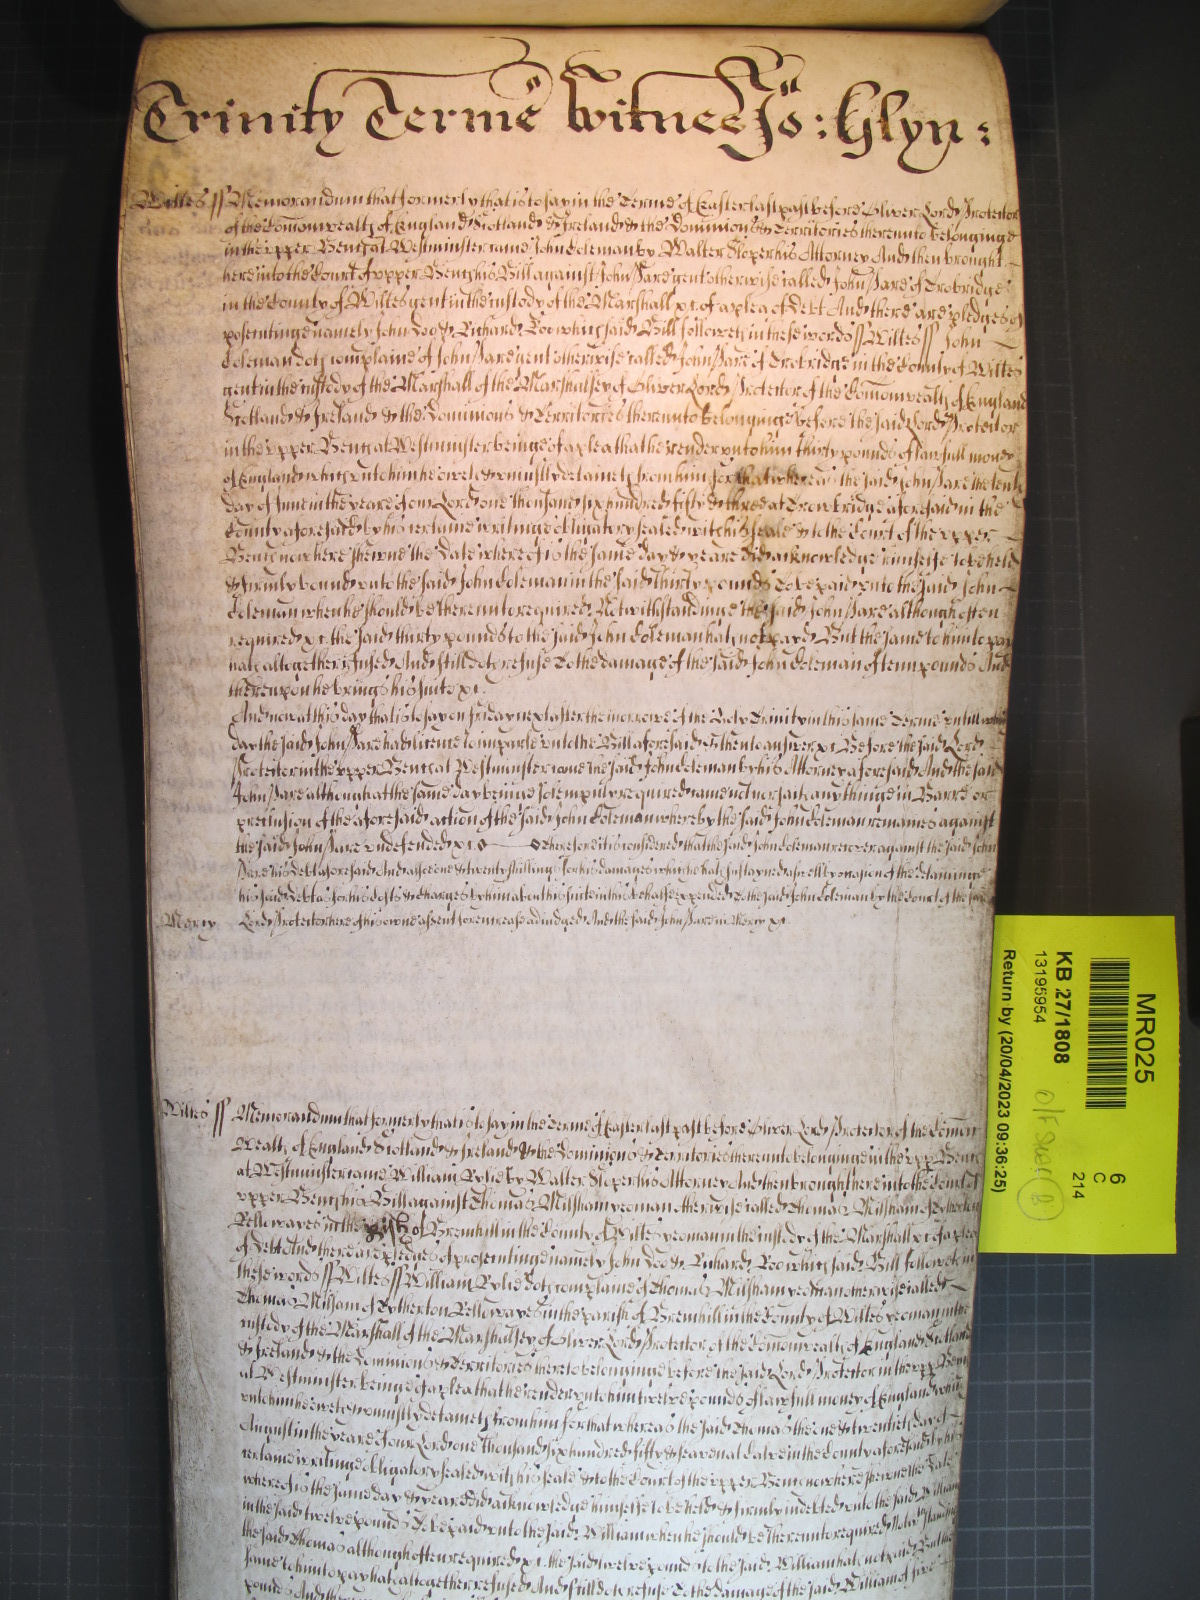 Trinity Terme Witnes Jo: Glyn:
Wiltes ss Memorandum that formerly that is to say in the Terme of Easter last past before Oliver Lord Protector
of the Comonwealth of England Scotland & Ireland & the Dominions & Territories thereunto belonginge
in the vpper Bench at Westminster came John Coleman by Walter Sloper his Attorney And then brought
here into the Court of vpper Bench his Bill against John Sare gent otherwise called John Sare of Trobridge
in the County of Wiltes gent in the custody of the Marshall &c. of a plea of Debt And there are pledges of
prosecutinge namely John Doo & Richard Roo which said Bill followeth in these words ss Wiltes ss John
Coleman doth complaine of John Sare gent otherwise called John Sare of Trobridge in the County of Wiltes
gent in the custody of the Marshall of the Marshalsey of Oliver Lord Protector of the Comonwealth of England
Scotland & Ireland & the Dominions & Territories thereunto belonginge before the said Lord Protector
in the vpper Bench at Westminster beinge of a plea that he render vnto him thirty pounds of lawfull money
of England which vnto him he oweth & vniustly detaineth from him for that whereas the said John Sare the tenth
day of June in the yeare of our Lord one thousand six hundred fifty & three at Trowbridge aforesaid in the
County aforesaid by his certaine writinge obligatory sealed with his seale & to the Court of the vpper
Bench now here shewne the Date whereof is the same day & yeare did acknowledge himselfe to be held
& firmly bound vnto the said John Coleman in the said thirty pounds To be paid vnto the said John
Coleman when he should be thereunto required Notwithstandinge the said John Sare although often
required &c. the said thirty pounds to the said John Coleman hath not payd But the same to him to pay
hath altogether refused And still doth refuse To the damage of the said John Coleman of tenn pounds And
thereupon he brings his suite &c.
And now at this day that is to say on Friday next after the morrowe of the Holy Trinity in this same Terme vntill which
day the said John Sare had licence to imparle vnto the Bill aforesaid & then to answer &c. Before the said Lord
Protector in the vpper Bench at Westminster came the said John Coleman by his Attorney aforesaid And the said
John Sare although at the same day beinge solempnly required came not nor saith any thinge in Barre or
preclusion of the aforesaid action of the said John Coleman whereby the said John Coleman remaines against
the said John Sare vndefended &c. Therefore it is considered that the said John Coleman recover against the said John
Sare his Debt aforesaid And alsoe one & twenty shillings for his damages which he hath sustayned as well by occasion of the detaininge
his said Debt as for his costs & charges by him about his suite in this behalfe expended to the said John Coleman by the Court of the said
Mercy Lord Protector here of his owne assent for encrease adiudged And the said John Sare in Mercy &c.
Wiltes ss Memorandum that formerly that is to say in the Terme of Easter last past before Oliver Lord Protector of the Comon
Wealth of England Scotland & Ireland & the Dominions & Territories thereunto belonginge in the vpp Bench
at Westminster came William Rylie by Walter Sloper his Attorney And then brought here into the Court of
vpper Bench his Bill against Thomas Millsham yeoman otherwise called Thomas Millsham of Tytherton
Kellowayes in the parish of Bremhill in the County of Wiltes yeoman in the custody of the Marshall &c. of a plea
of Debt And there are pledges of prosecutinge namely John Doo & Richard Roo which said Bill followeth in
these words ss Wiltes ss William Rylie doth complaine of Thomas Millsham yeoman otherwise called
Thomas Millsham of Tytherton Kellowayes in the parish of Bremhill in the County of Wiltes yeoman in the
custody of the Marshall of the Marshalsey of Oliver Lord Protector of the Comonwealth of England Scotland
& Ireland & the Dominions & Territories thereto belonginge before the said Lord Protector in the vpp Bench
at Westminster beinge of a plea that he render vnto him twelve pounds of lawfull money of England which
vnto him he oweth & vniustly detaineth from him for that whereas the said Thomas the one & twentieth day of
August in the yeare of our Lord one thousand six hundred fifty & seaven at Calne in the County aforesaid by his
certaine writinge obligatory sealed with his seale & to the Court of the vpper Bench now here shewne the Date
whereof is the same day & yeare did acknowledge himselfe to be held & firmly indebted vnto the said William
in the said twelve pounds To be paid vnto the said William when he should be thereunto required Notwthstandinge
the said Thomas although often required &c. the said twelve pounds to the said William hath not paid But the
same to him to pay hath altogether refused And still doth refuse To the damage of the said William of five
pounds And
MR025
KB 27/1808
13195954
Return by (20/04/2023 09:36:25)
6
C
214